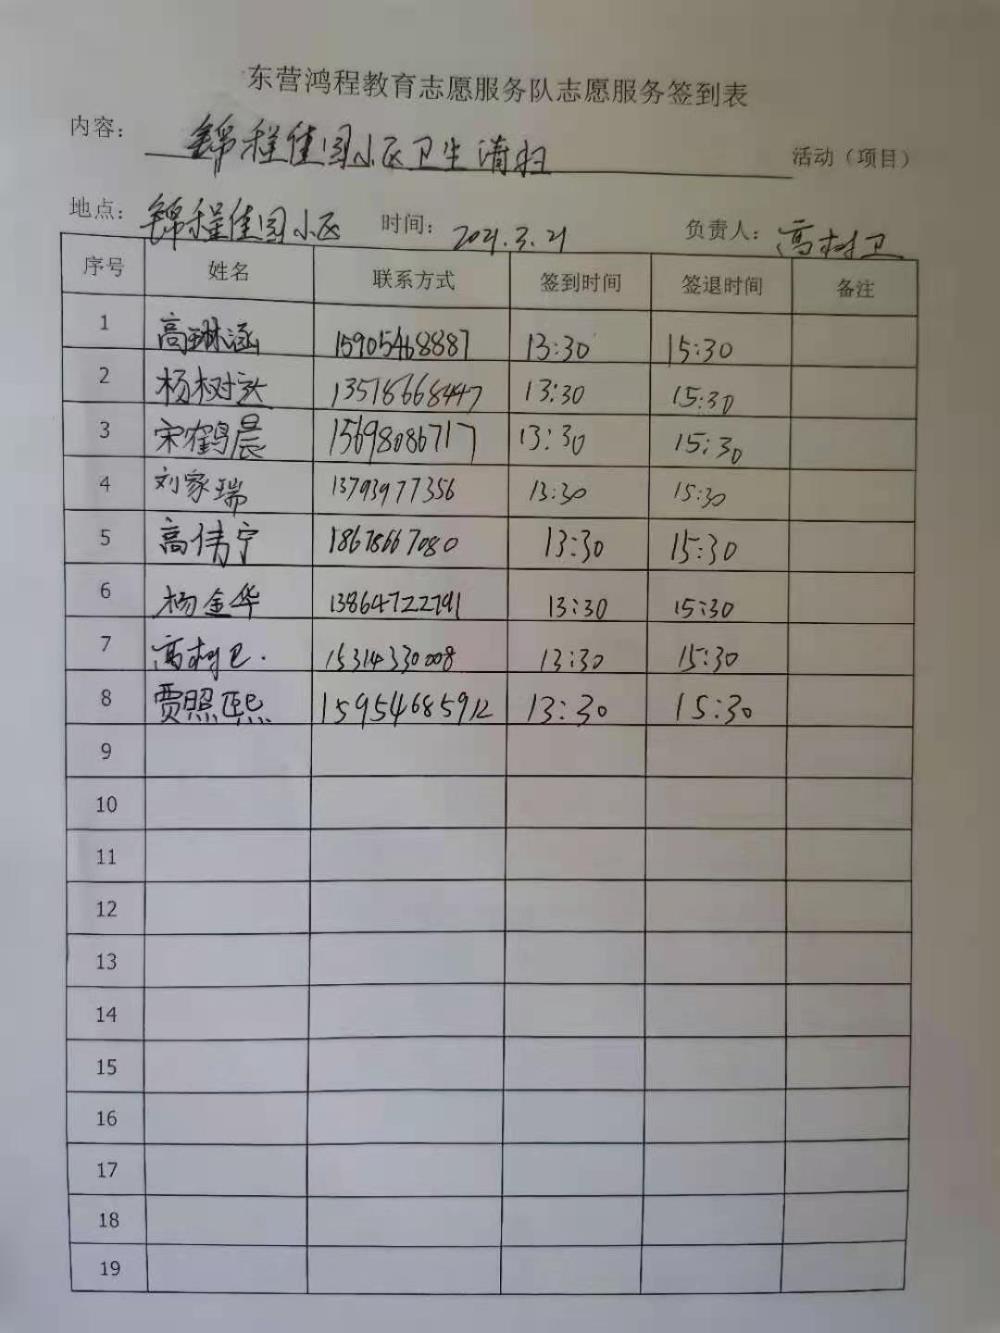 东营鸿程教育志愿服务队志愿服务签到表
内容： 锦程佳园小区卫生清扫 活动（项目）
地点： 锦程佳园小区 时间： 2021.3.21 负责人： 高树卫
序号 姓名 联系方式 签到时间 签退时间 备注
1 高琳涵 15905468887 13:30 15:30
2 杨树 13518668447 13:30 15:30
3 宋鹤晨 15698086717 13:30 15:30
4 刘家瑞 13793977356 13:30 15:30
5 高伟宁 18678667080 13:30 15:30
6 杨金华 13864722791 13:30 15:30
7 高树卫. 15314330008 13:30 15:30
8 贾照熙 15954685912 13:30 15:30
9
10
11
12
13
14
15
16
17
18
19